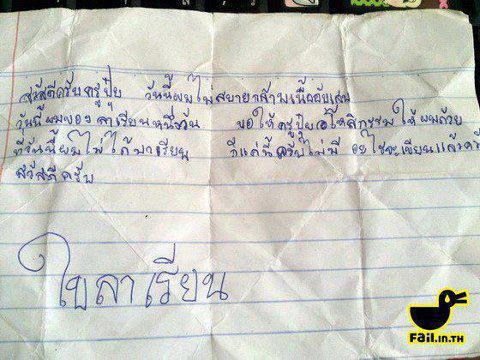 สวัสดีครับครูปุ๋ย วันนี้ผมไม่สยายกล้ามเนื้ออับเสบ
วันนี้ผมของลาเรียนหนึ่งวัน ขอให้ครูปุ๋ยอโหสิกรรมให้ผมด้วย
ที่วันนี้ผมไม่ได้มาเรียน ก็แค่นี้ครับไม่มี อะไรจะเขียนแล้วครั
สวัสดีครับ
ใบลาเรียน
FAIL.in.TH